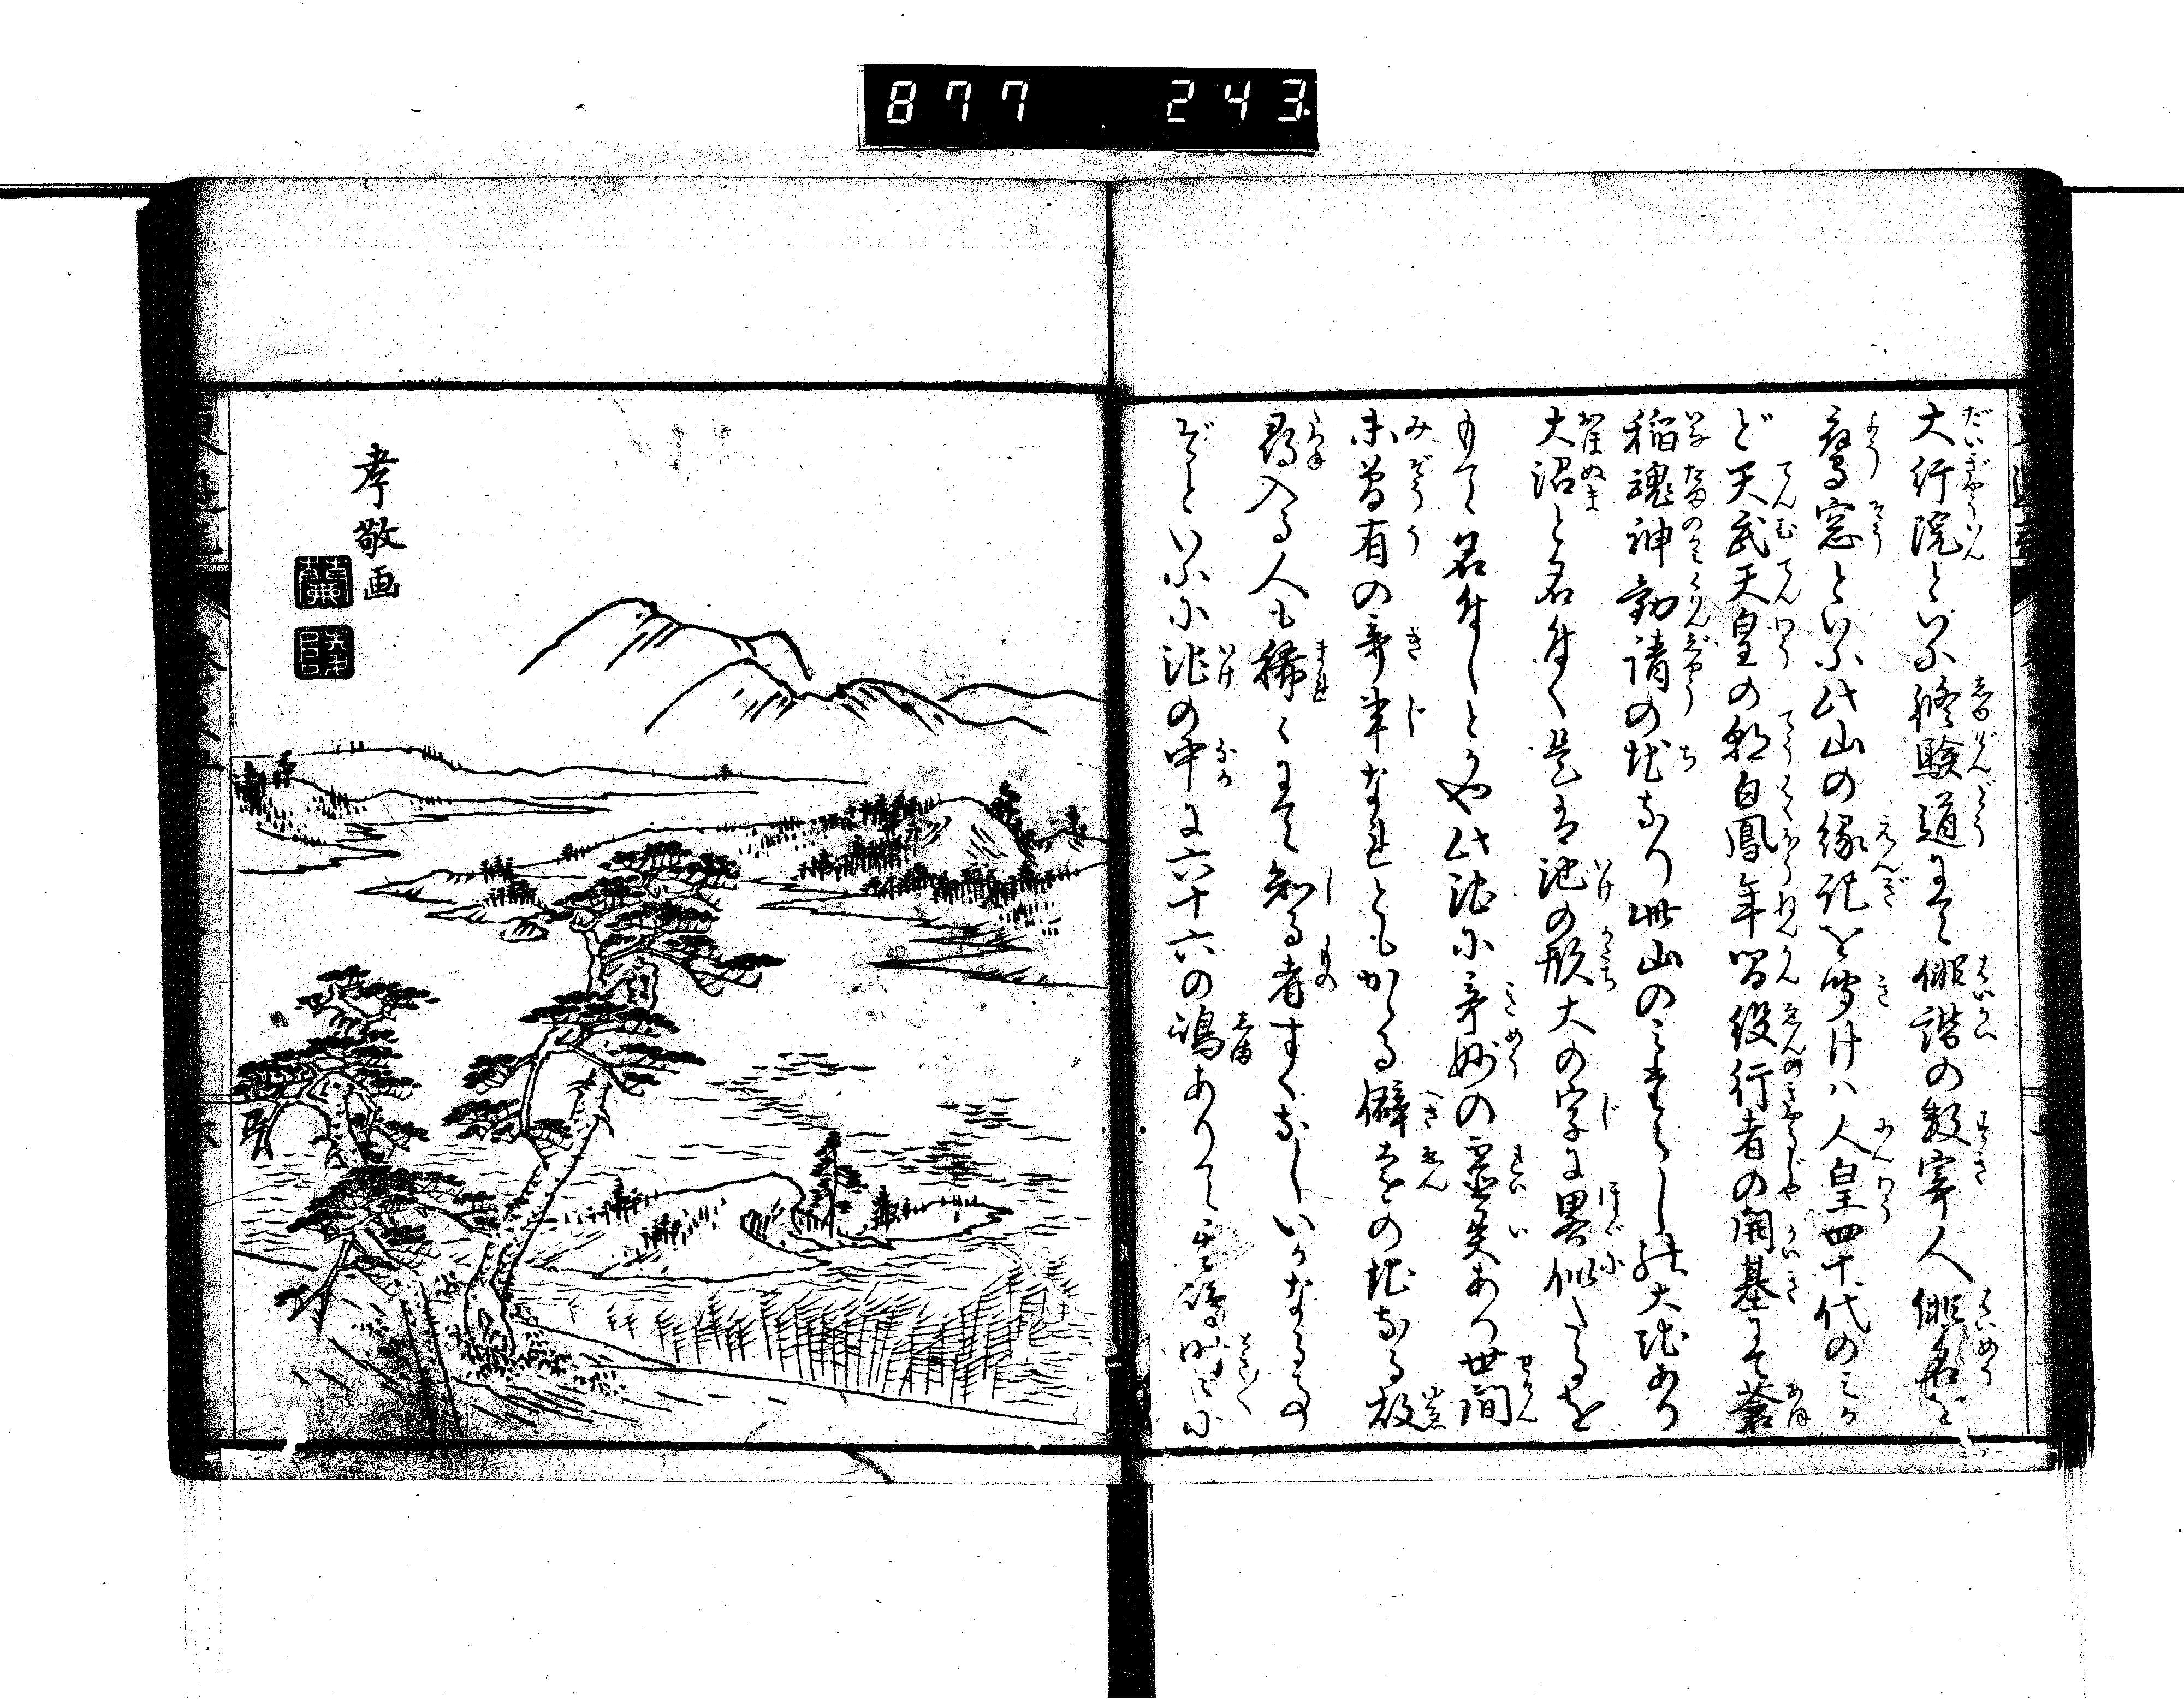 877 243
大行院といふ修験道にて俳諧の数寄人俳名を
鷹窓といふ此山の縁記を聞けハ人皇四十代のみか
ど天武天皇の朝白鳳年間役行者の開基にて蒼
稲魂神勧請の地なり此山のうしろに大池あり
大沼と名付く是は池の形大の字に畧似たるを
もて名付しとかや此沼に奇妙の霊異あり世間
未曽有の奇事なれともかゝる僻遠の地なる故
尋入る人も稀にて知る者すくなしいかなる事
ぞといふに池の中に六十六の嶋ありて
孝敬画